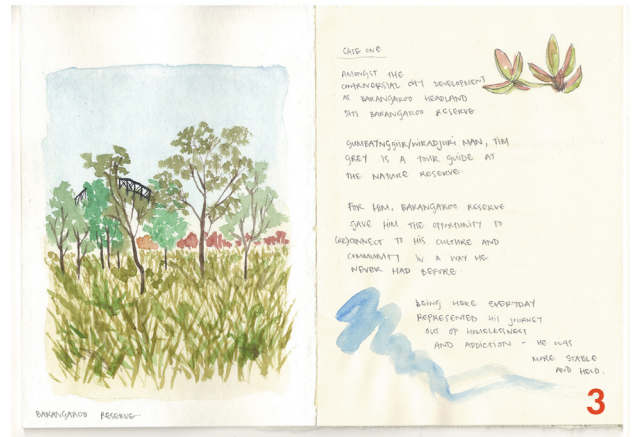 BARANGAROO RESERVE
CASE ONE
AMONGST THE
CONTROVERSIAL CITY DEVELOPMENT
AS BARANGAROO HEADLAND
SITS BARANGAROO RESERVE
GUMBAYNGGIIR/WIRADJURI MAN, TIM
GREY IS A TOUR GUIDE AT
THE NATURE RESERVE
FOR HIM, BARANGAROO RESERVE
GAVE HIM THE OPPORTUNITY TO
(RE)CONNECT TO HIS CULTURE AND
COMMUNITY IN A WAY HE
NEVER HAD BEFORE.
BEING HERE EVERYDAY
REPRESENTED HIS JOURNEY
OUT OF HOMELESSNESS
AND ADDICTION - HE WAS
MORE STABLE
AND HELD.
3